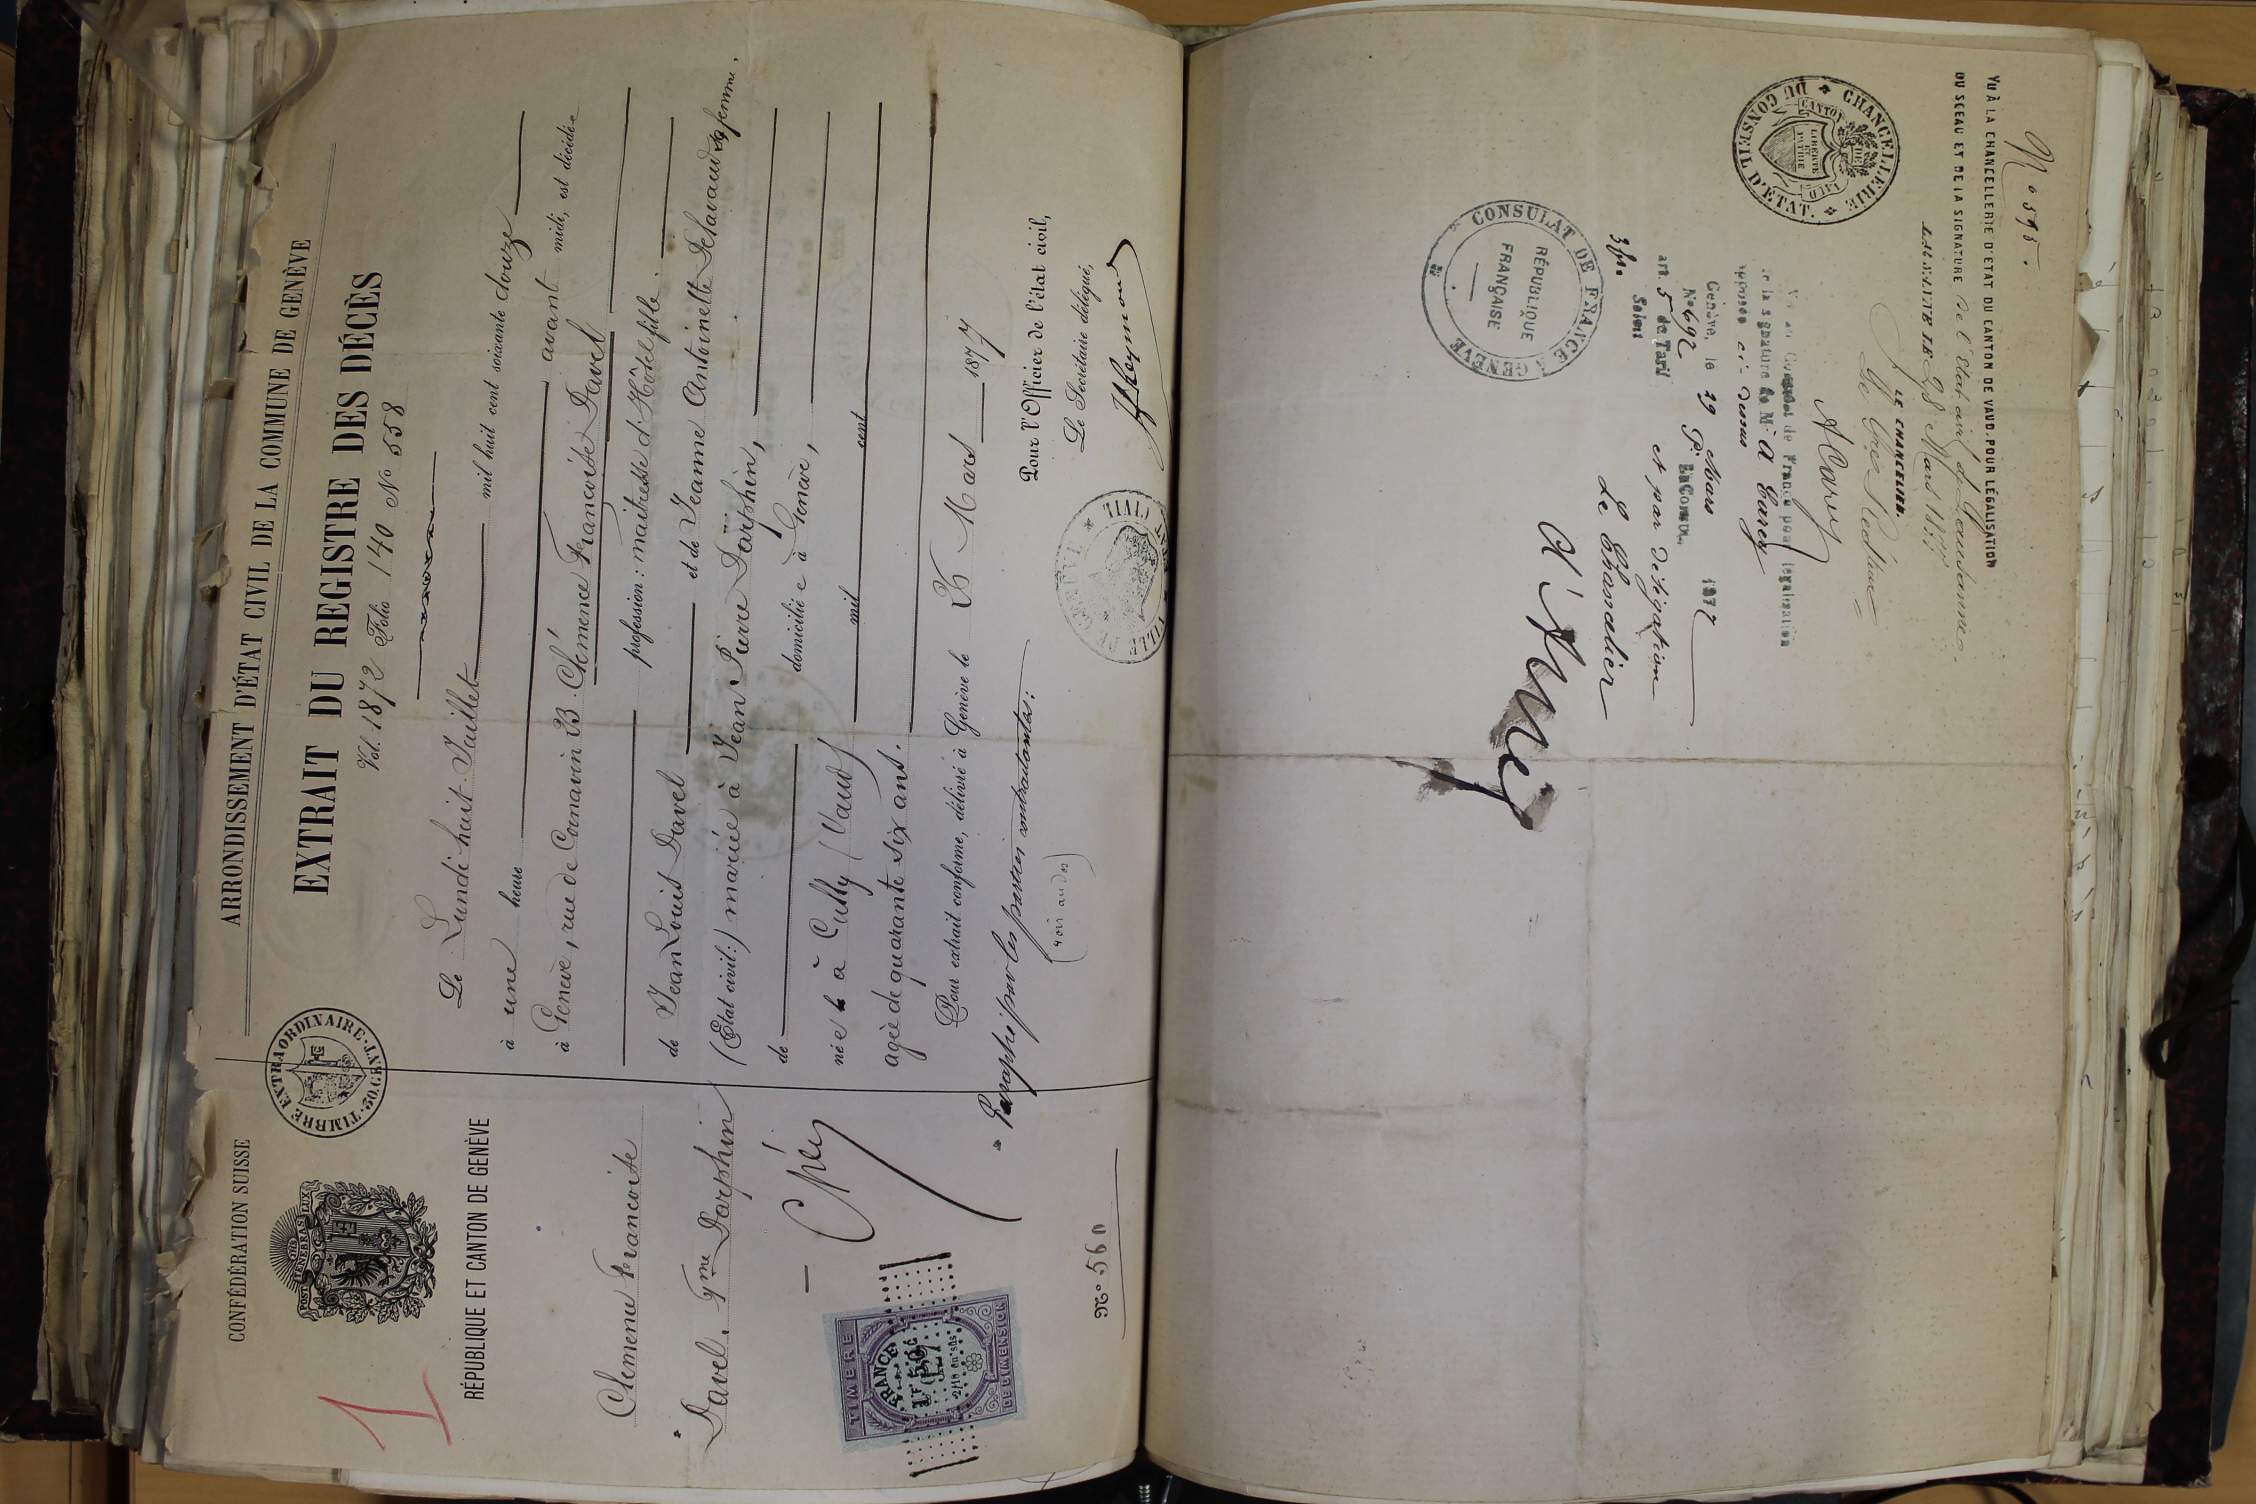 CONFÉDÉRATION SUISSE
POST TENEBRAS LUX
RÉPUBLIQUE ET CANTON DE GENÈVE
1
TIMBRE EXTRAORDINAIRE
Clémence Françoise
Davel, fme Dorphin
TIMBRE
FRANCE
2/10 en sus
DE DIMENSION
No 560
ARRONDISSEMENT D'ÉTAT CIVIL DE LA COMMUNE DE GENÈVE
EXTRAIT DU REGISTRE DES DÉCÈS
Vol. 1872 Folio 140 No 558
Le Lundi huit Juillet mil huit cent soixante douze
à une heure avant midi, est décédée
à Genève, rue de Cornavin 23. Clémence Françoise Davel
profession: maitresse d'Hôtel fille
de Jean Louis Davel et de Jeanne Antoinette Delavaud sa femme.
(Etat civil:) mariée à Jean Pierre Dorphin,
de domicilié e à Genève,
né e à Cully (Vaud) mil cent
agée de quarante six ans.
Pour extrait conforme, délivré à Genève le 26 Mars 1877
Paraphé par les parties contractantes:
Pour l'Officier de l'état civil,
Le Secrétaire délégué,
VILLE DE GENÈVE
No 595.
VU À LA CHANCELLERIE D'ETAT DU CANTON DE VAUD, POUR LÉGALISATION
DU SCEAU ET DE LA SIGNATURE de l'Etat civil de Lausanne.
LAUSANNE LE 28 Mars 1877
LE CHANCELIER.
CHANCELLERIE DU CONSEIL D'ETAT.
CANTON DE VAUD
LIBERTÉ ET PATRIE
A Carey
Vu au Consulat de France pour légalisation
de la signature de Mr A Carey
apposée ci dessus
Genève, le 29 Mars 1877
No 692 P. Le Consul
art. 5 du Tarif et par délégation
Soient Le Chancelier
3 fr.
CONSULAT DE FRANCE À GENÈVE
RÉPUBLIQUE FRANÇAISE